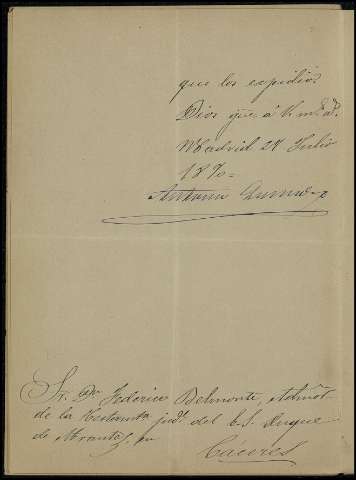 que los expidió.
Dios güe á V. m.s a.s
Madrid 24 Julio
1890=
Antonio
Sr. Dn. Federico Belmonte, Admor.
de la Testamta. jud. del E. S. Duque
de Abrantes, en
Cáceres